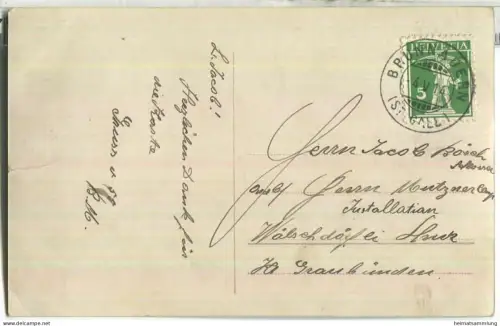 L. Jacob!
Herzlichen Dank für
die Karte
Gruss
B. M.
HELVETIA
5
(ST. GALL
Herrn Jacob Bösch
Herrn
Installation
Wälschdörfli Chur
Kt Graubünden
heimatsammlung.com